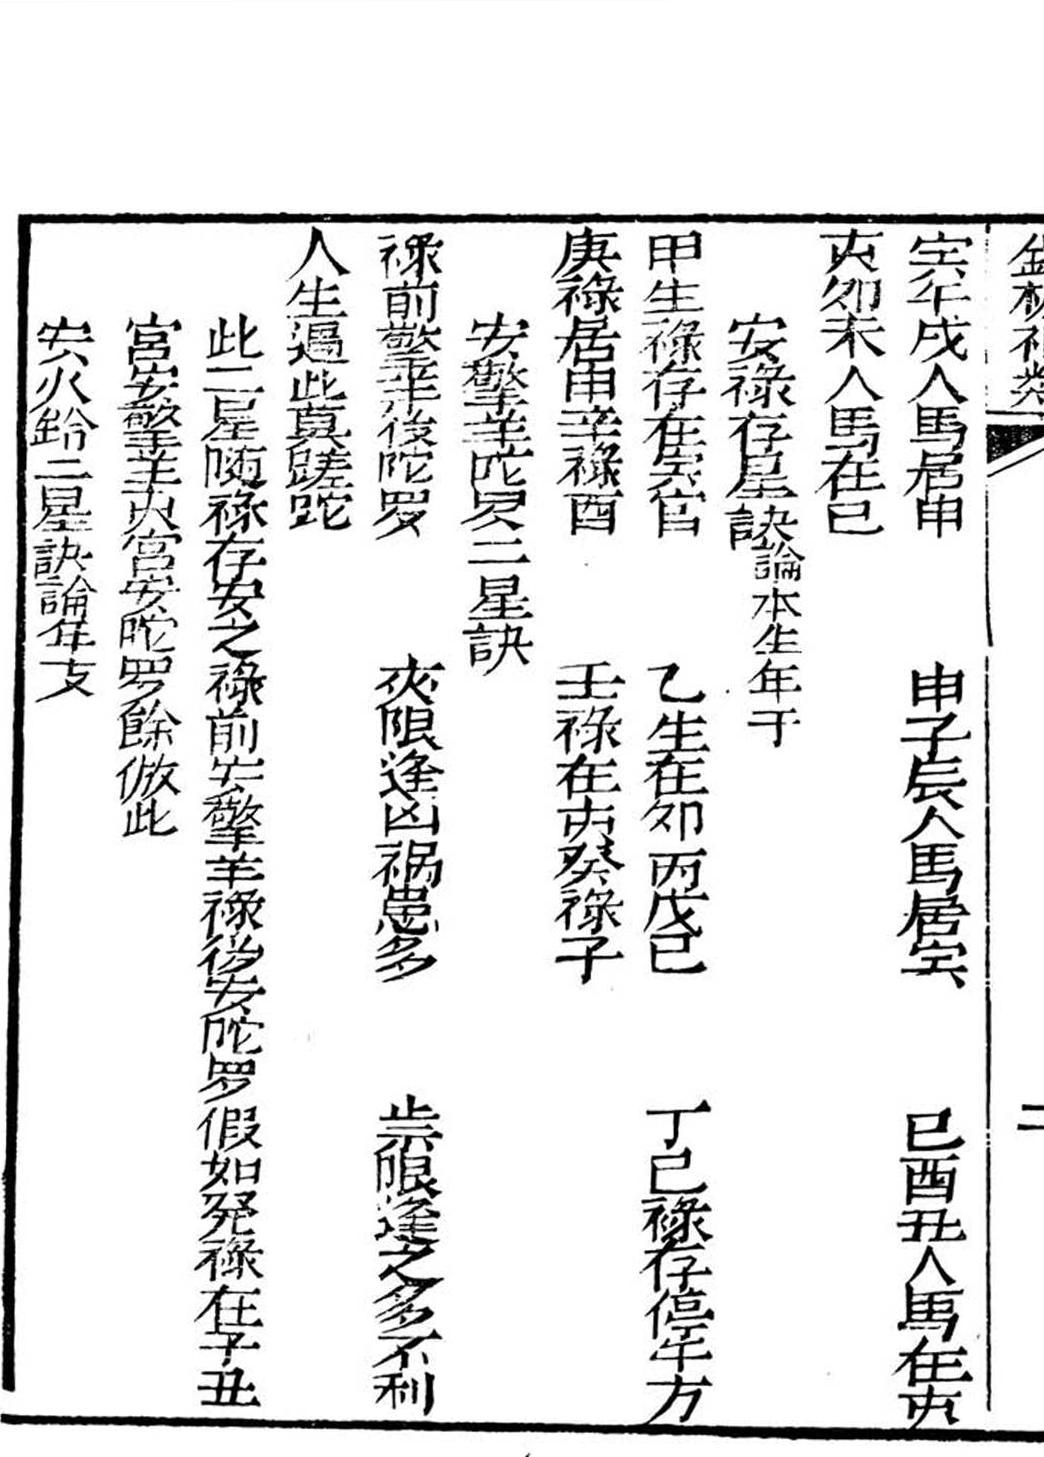 二
寅午戌人馬居申　申子辰人馬居寅　巳酉丑人馬在亥
亥卯未人馬在巳
安祿存星訣論本生年干
甲生祿存在寅宮　乙生在卯丙戊巳　丁己祿存停午方
庚祿居申辛祿酉　壬祿在亥癸祿子
安擎羊陀罗二星訣
祿前擎羊后陀罗　夾限逢凶祸患多　歲限逢之多不利
人生遇此莫蹉跎
此二星随祿存安之祿前安擎羊祿後安陀罗假如癸祿在子丑
宮安擎羊亥宮安陀罗餘倣此
安火鈴二星訣論年支